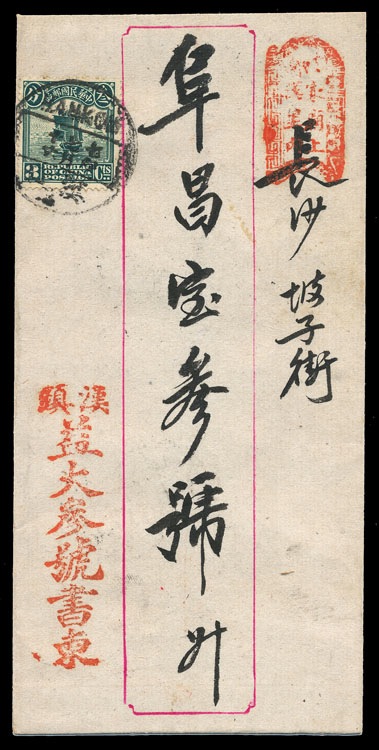 長沙 坡子街
阜昌宝參號升
漢鎮
益大參號書柬
中華民國郵政
3 Cts
REPUBLIC
OF CHINA
POSTAGE